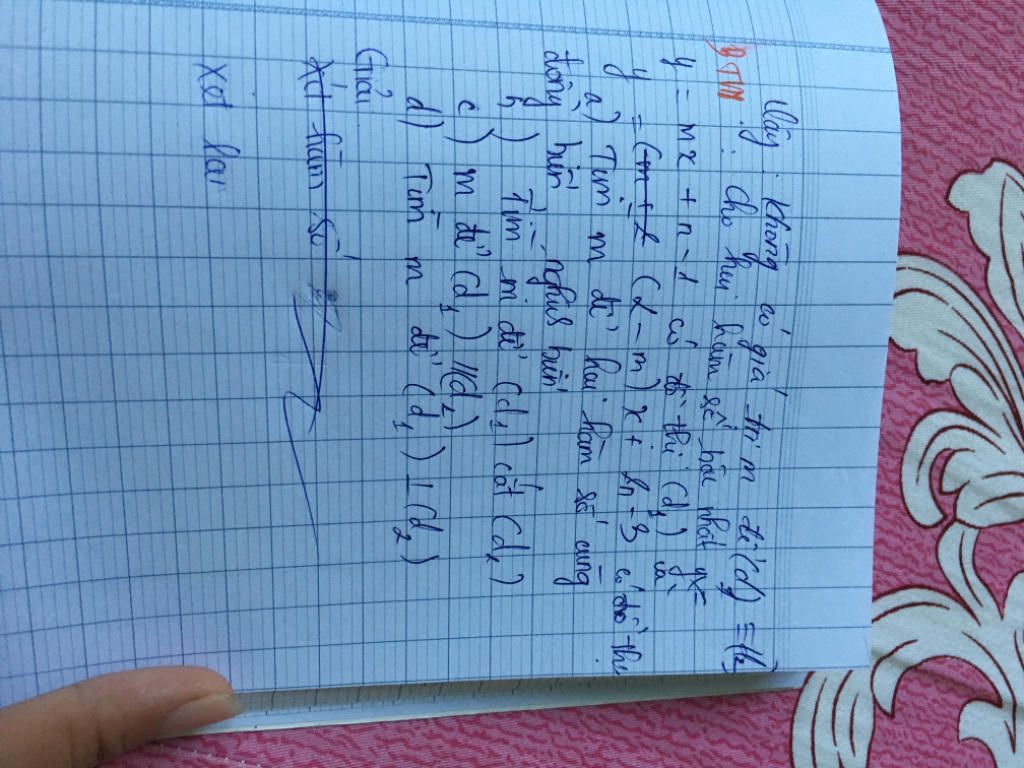 Vậy: không có giá trị m để (d1) ≡ (d2)
BTVN: Cho hai hàm số bậc nhất
y = mx + n - 1 có đồ thị (d1) và
y = (-m + 2 (2 - m)x + 2n - 3 có đồ thị
a) Tìm m để hai hàm số cùng
đồng biến, nghịch biến
b) Tìm m để (d1) cắt (d2)
c) m để (d1) // (d2)
d) Tìm m để (d1) ⊥ (d2)
Giải
Xét hàm số
Xét hai